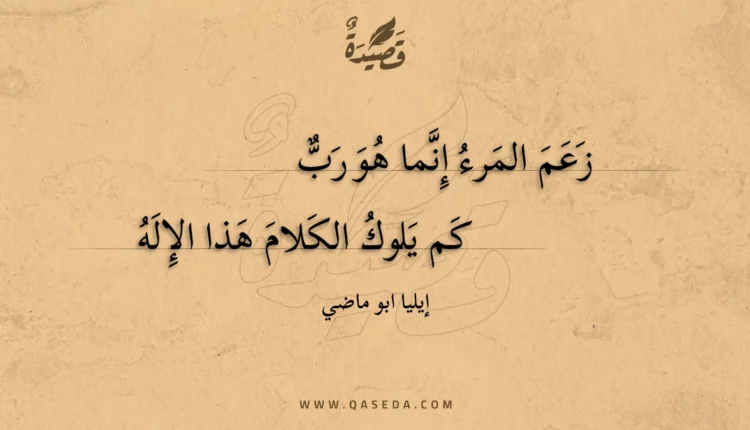 قَصِيدَةٌ
زَعَمَ المَرءُ إِنَّما هُوَ رَبٌّ
كَم يَلوكُ الكَلامَ هَذا الإِلَهُ
إيليا ابو ماضي
WWW.QASEDA.COM